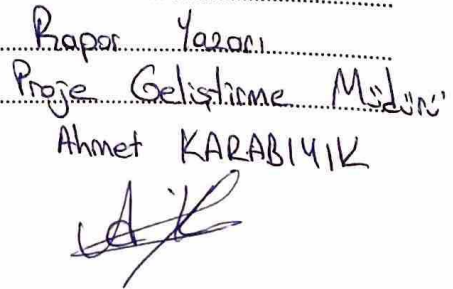 Rapor Yazarı
Proje Geliştirme Müdürü
Ahmet KARABIYIK